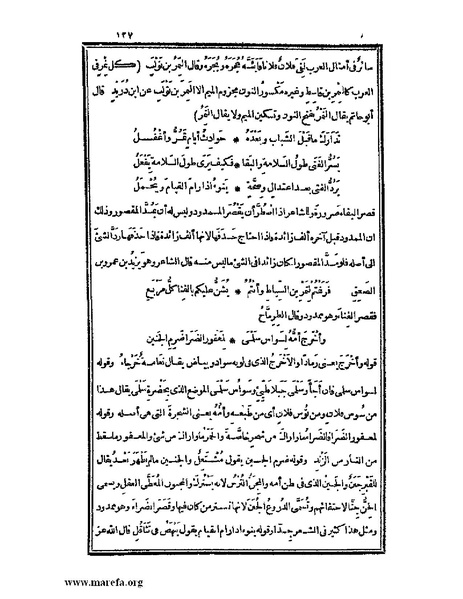 ١٢٧
سائر في أمثال العرب لقى فلان فلانا فأبثه عجره وبجره وقال النمر بن تولب (كل نمر في
العرب كالنمر بن قاسط وغيره مكسور النون مجزوم الميم الا النمر بن تولب عن ابن دريد قال
أبو حاتم يقال النمر بفتح النون وتسكين الميم ولا يقال النمر)
تدارك ماقبل الشباب وبعده * حوادث أيام تمر وأغفل
يسر الفتى طول السلامة والبقا * فكيف يرى طول السلامة يفعل
يرد الفتى بعد اعتدال وصحة * ينوء اذا رام القيام ويحمل
قصر البقاء ضرورة وللشاعر اذا اضطر أن يقصر الممدود وليس له أن يمد المقصور وذلك
ان الممدود قبل آخره ألف زائدة فاذا احتاج حذفها لانها ألف زائدة فاذا حذفها رد الشئ
الى أصله فلو مد المقصور لكان زائدا في الشئ ماليس منه قال الشاعر وهو يزيد بن عمرو بن
الصعق فرغتم لتمرين السياط وأنتم * يشن عليكم بالفنا كل مربع
فقصر الفناء وهو ممدود قال الطرماح
وأخرج أمه لسواس سلمى * لمعفور الضرا ضرم الجنين
قوله وأخرج يعنى رمادا والاخرج الذى فى لونه سواد وبياض يقال نعامة خرجاء وقوله
لسواس سلمى فان أجأ وسلمى جبلا طيئ وسواس سلمى الموضع الذى بحضرة سلمى يقال هذا
من سوس فلان ومن توس فلان أى من طبعه وأمه يعنى الشجرة التى هى أصله وقوله
لمعفور الضرا فالضراء ماواراك من شجر خاصة والخمر ماواراك من شئ والمعفور ماسقط
من النار من الزند وقوله ضرم الجنين يقول مشتعل والجنين مالم يظهر بعد يقال
للقبر جنن والجنين الذى فى بطن أمه والمجن الترس لانه يستر بك والمجنون المغطى العقل ويسمى
الجن جنا لاختفائهم وتسمى الدروع الجنن لانها تستر من كان فيها وقصر الضراء وهو ممدود
ومثل هذا كثير فى الشعر جدا وقوله ينوء اذا رام القيام يقول ينهض فى تثاقل قال الله عز
www.marefa.org